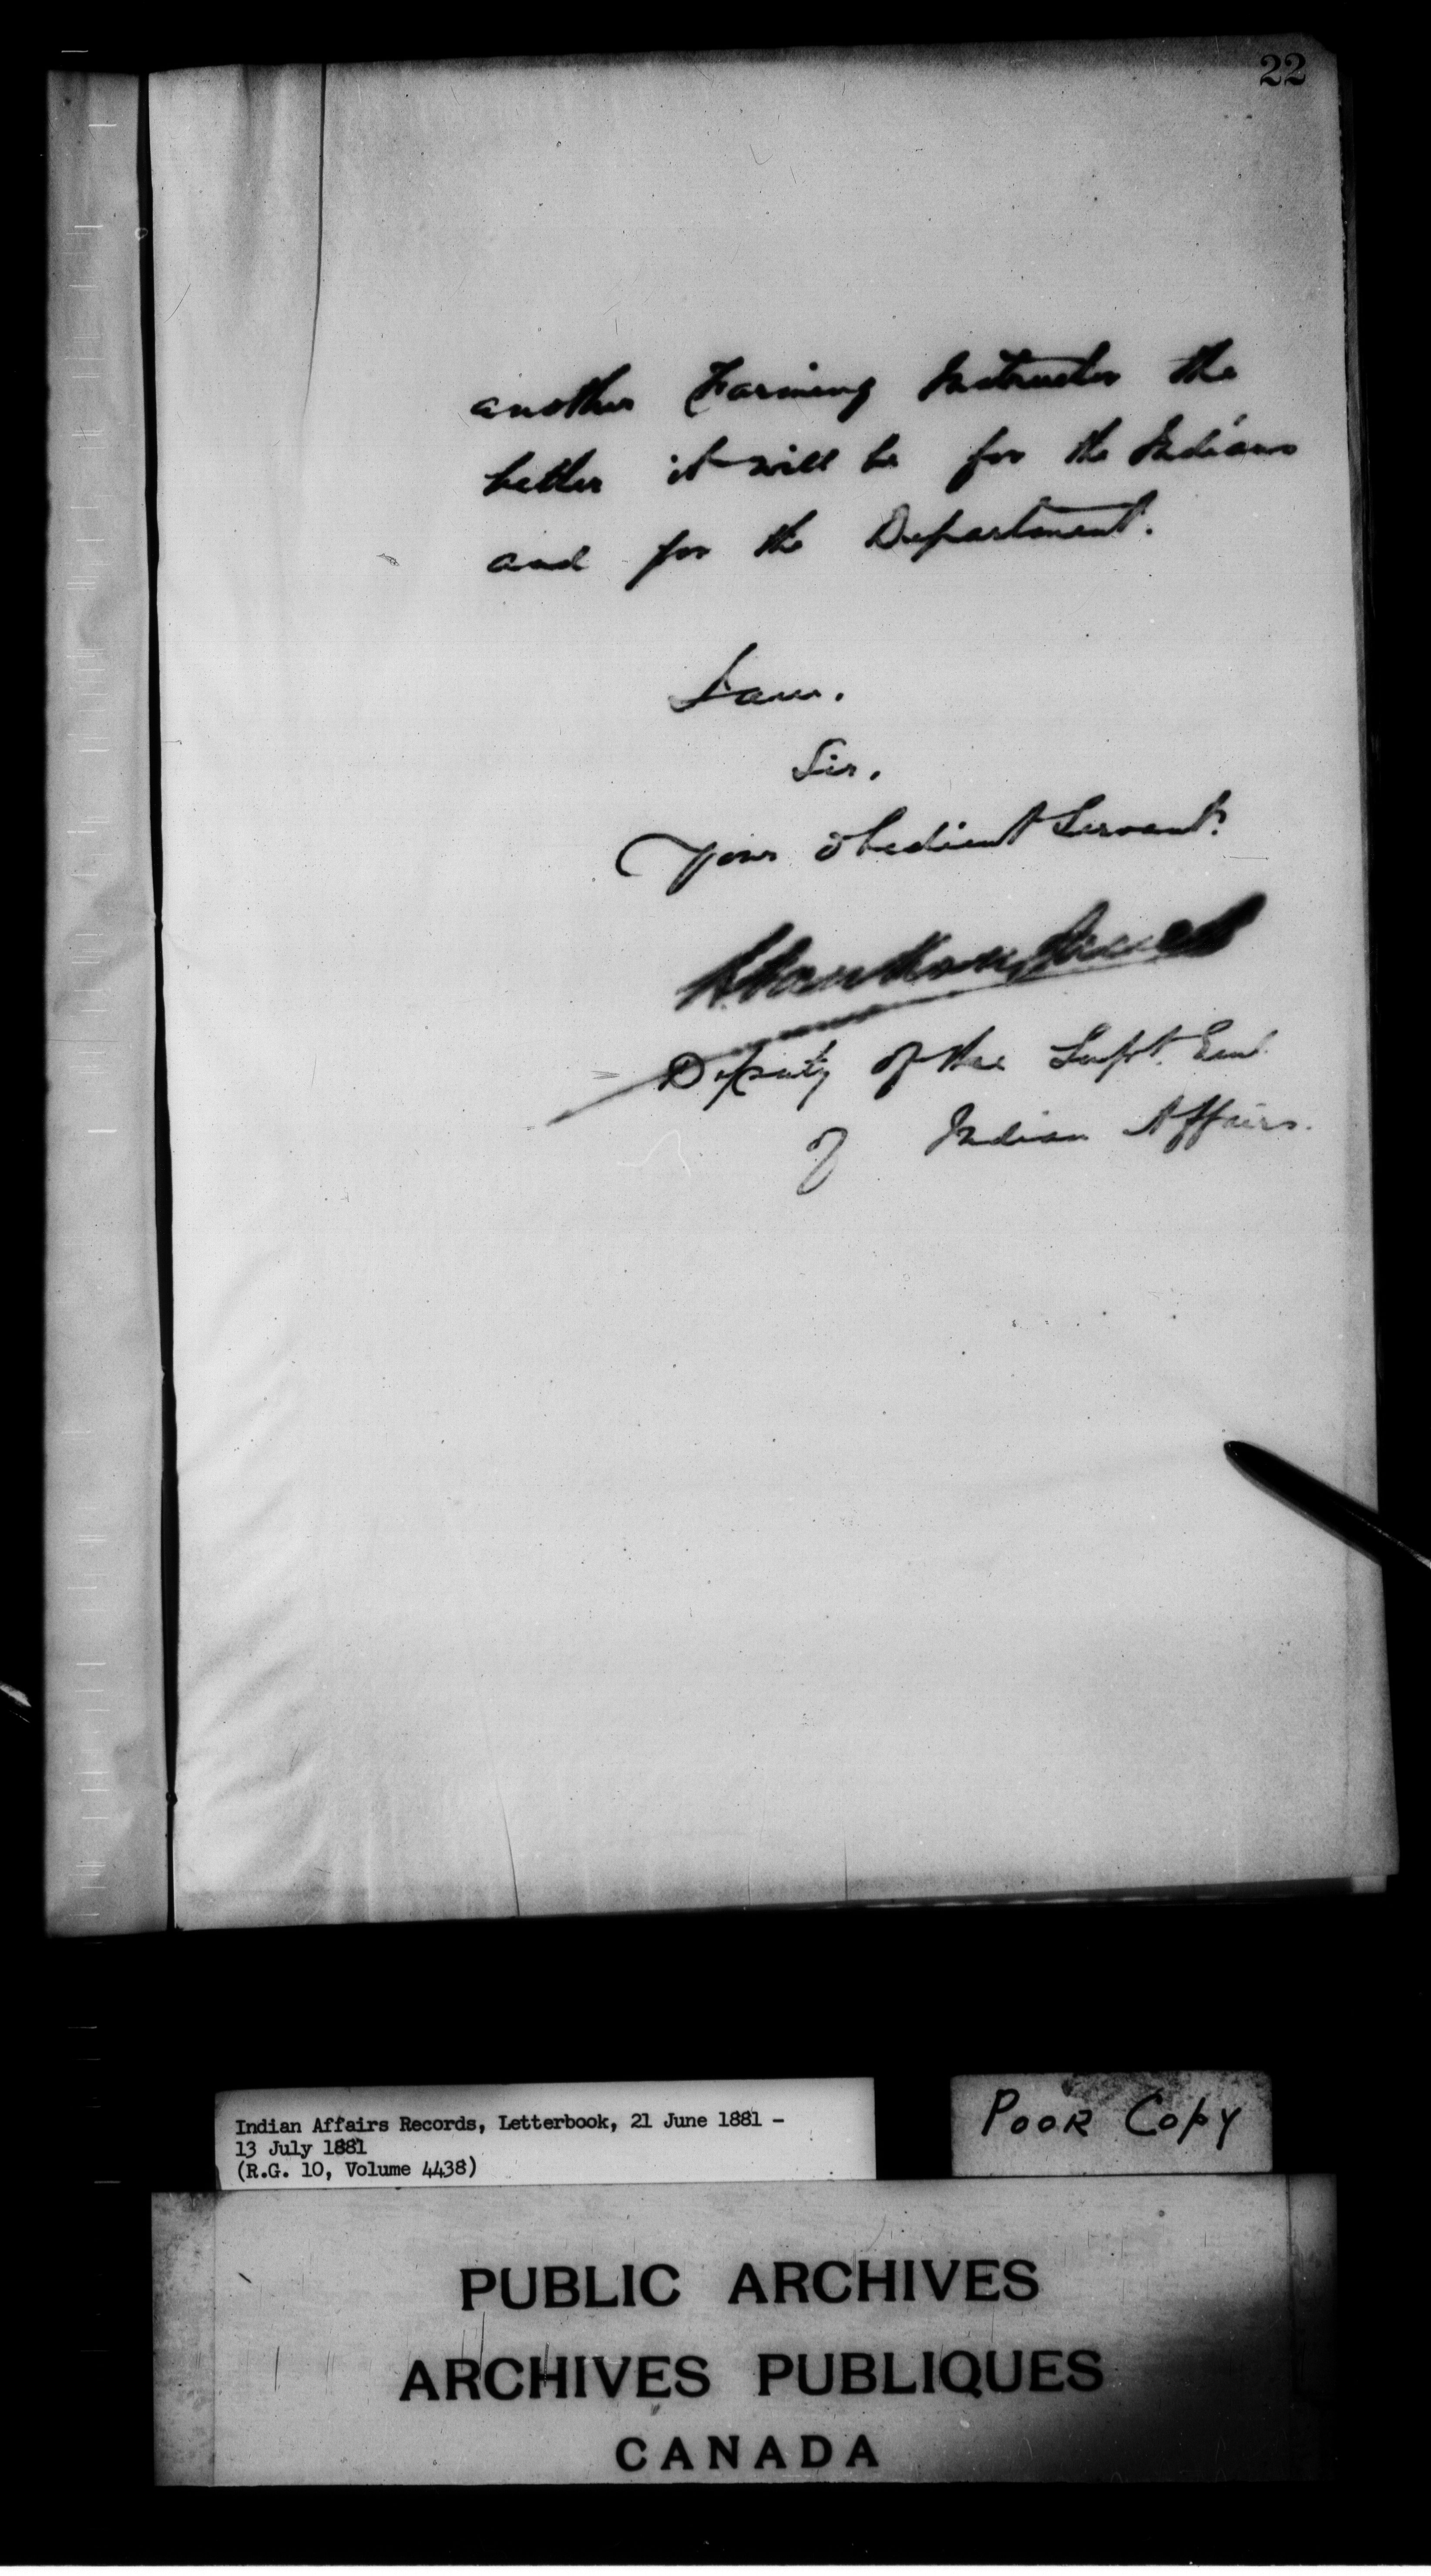 22
another Farming Instructor the
better it will be for the Indians
and for the Department.
I am.
Sir.
Your obedient Servant.
Deputy of the Supt. Genl.
of Indian Affairs.
Indian Affairs Records, Letterbook, 21 June 1881 -
13 July 1881
(R.G. 10, Volume 4438)
POOR COPY
PUBLIC ARCHIVES
ARCHIVES PUBLIQUES
CANADA